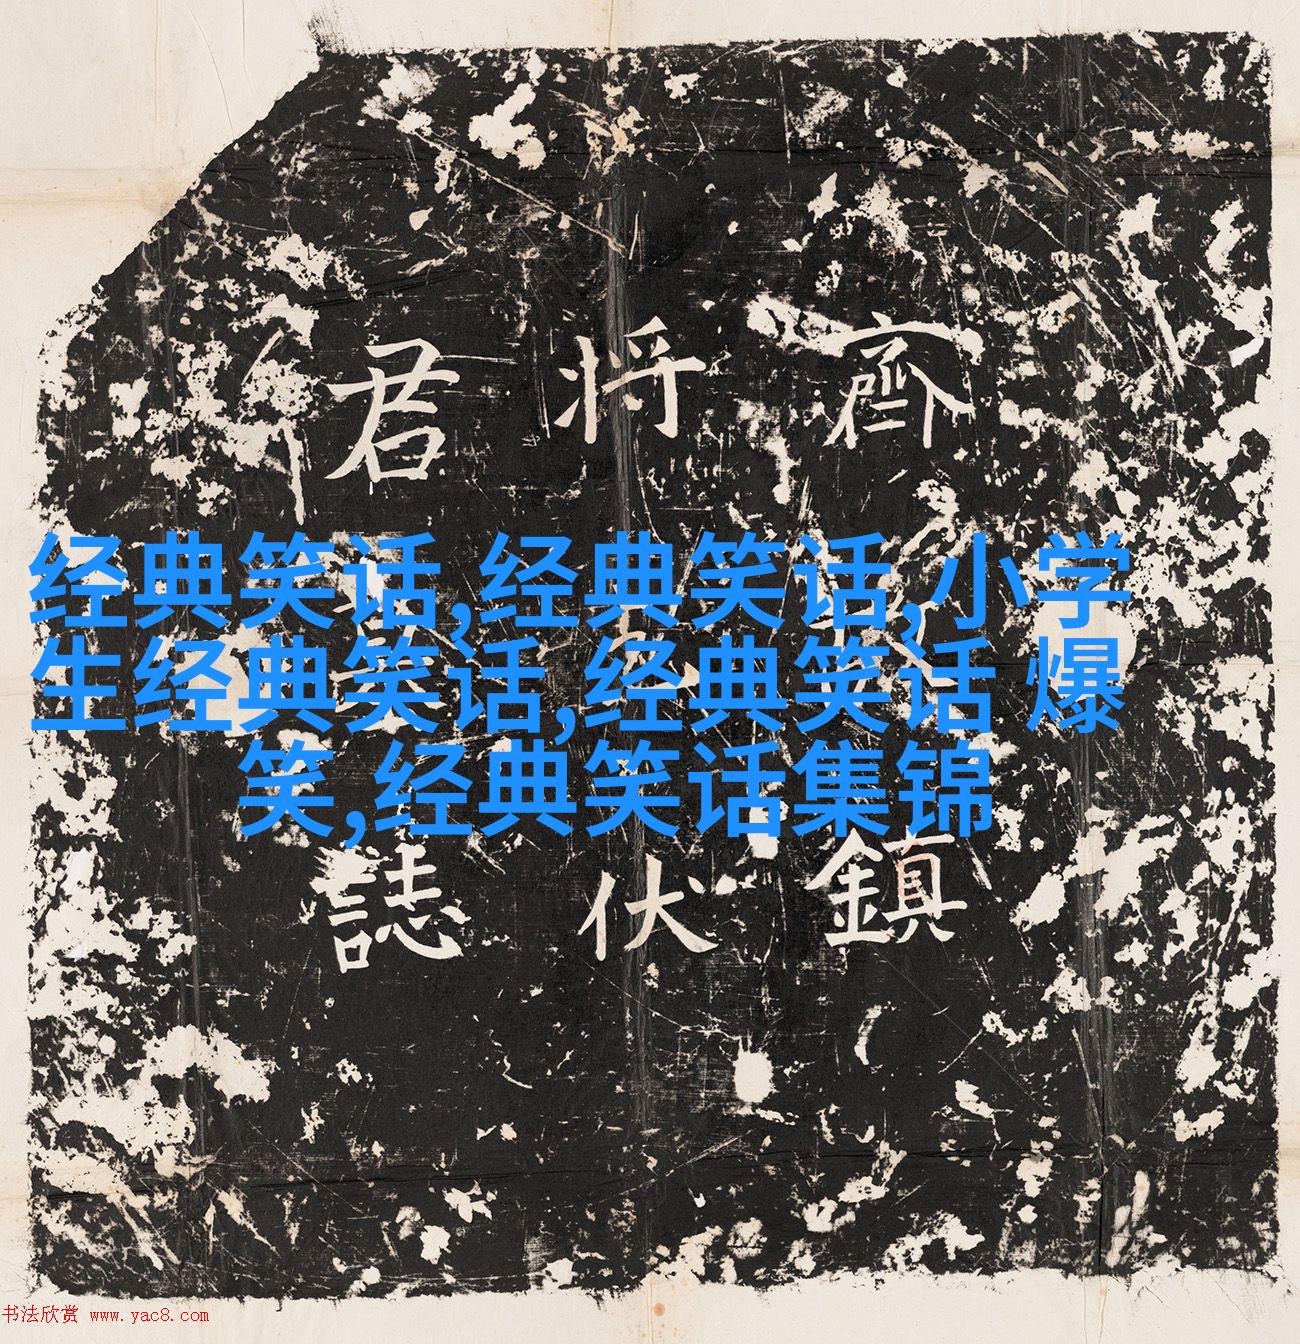 齊
鎮
将
伏
君
誌
经典笑话,经典笑话,小学
生经典笑话,经典笑话 爆
笑,经典笑话集锦
书法欣赏 www.yac8.com